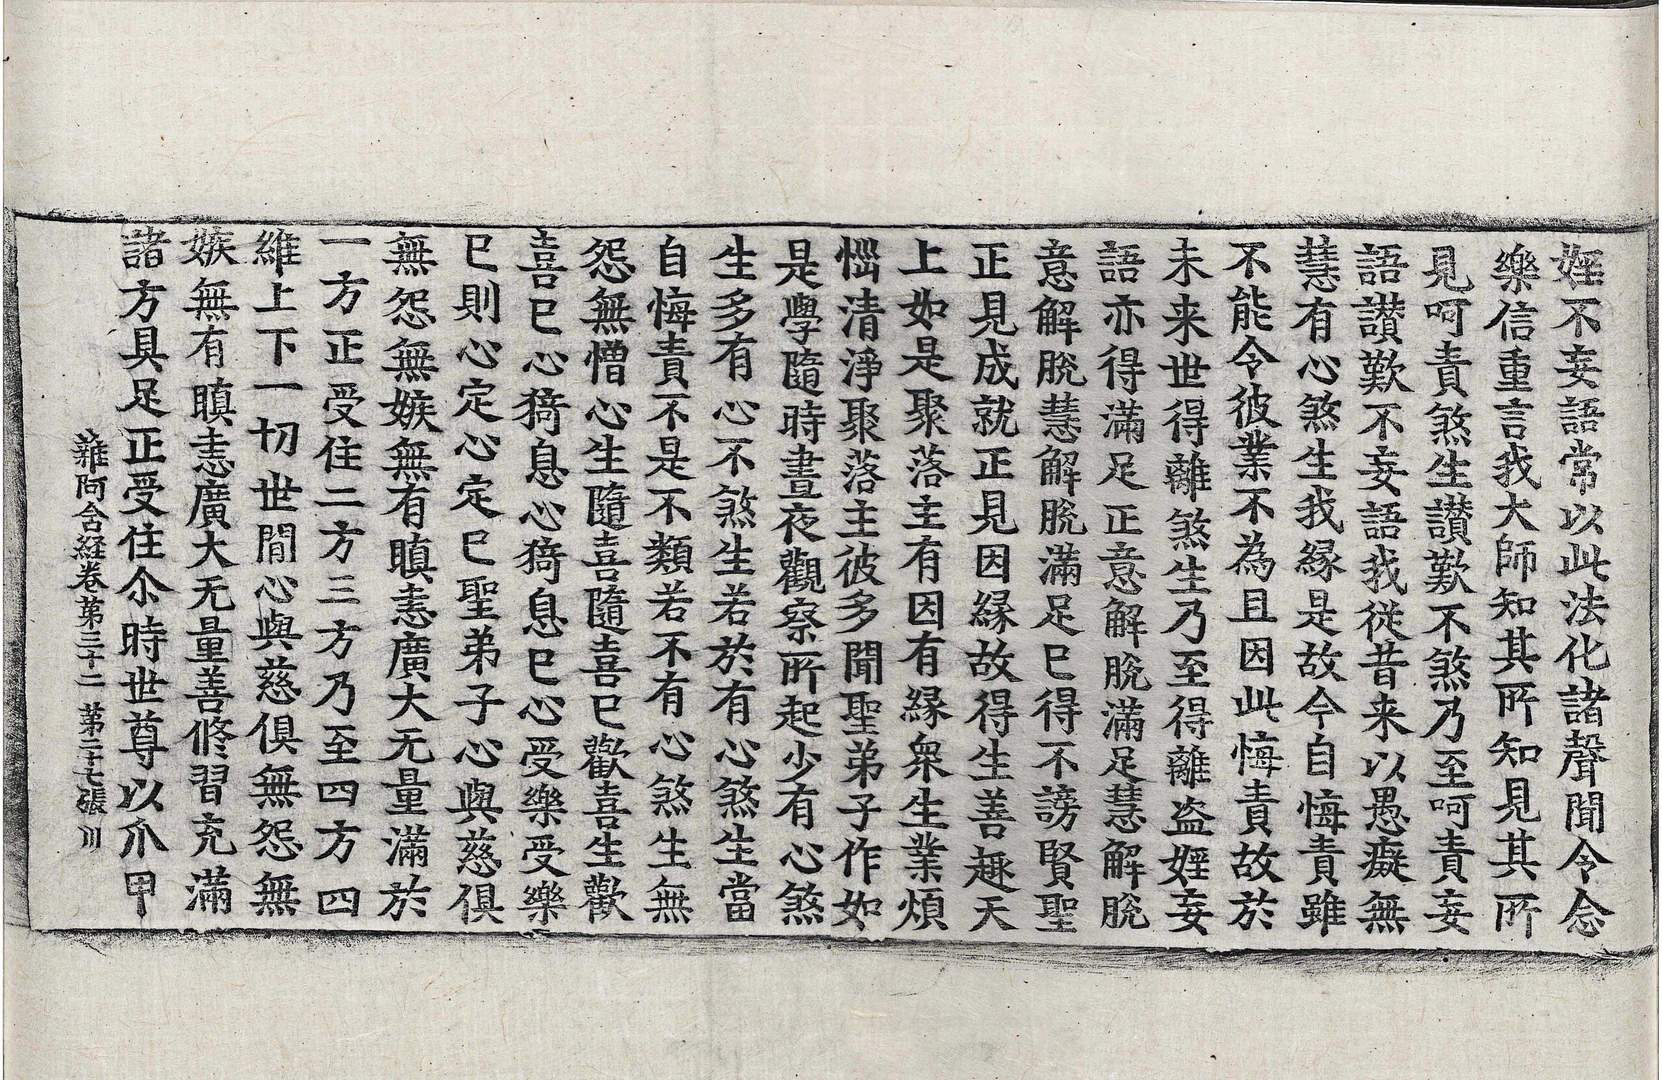 婬不妄語常以此法化諸聲聞令念
樂信重言我大師知其所知見其所
見呵責煞生讃歎不煞乃至呵責妄
語讃歎不妄語我從昔来以愚癡無
慧有心煞生我縁是故今自悔責雖
不能令彼業不為且因此悔責故於
未来世得離煞生乃至得離盗婬妄
語亦得滿足正意解脫滿足慧解脫
意解脫慧解脫滿足已得不謗賢聖
正見成就正見因縁故得生善趣天
上如是聚落主有因有縁衆生業煩
惱清淨聚落主彼多聞聖弟子作如
是學隨時晝夜觀察所起少有心煞
生多有心不煞生若於有心煞生當
自悔責不是不類若不有心煞生無
怨無憎心生隨喜隨喜已歡喜生歡
喜已心猗息心猗息已心受樂受樂
已則心定心定已聖弟子心與慈俱
無怨無嫉無有瞋恚廣大无量滿於
一方正受住二方三方乃至四方四
維上下一切世閒心與慈俱無怨無
嫉無有瞋恚廣大无量善修習充滿
諸方具足正受住尒時世尊以爪甲
雜阿含経卷第三十二 第二十七張 川